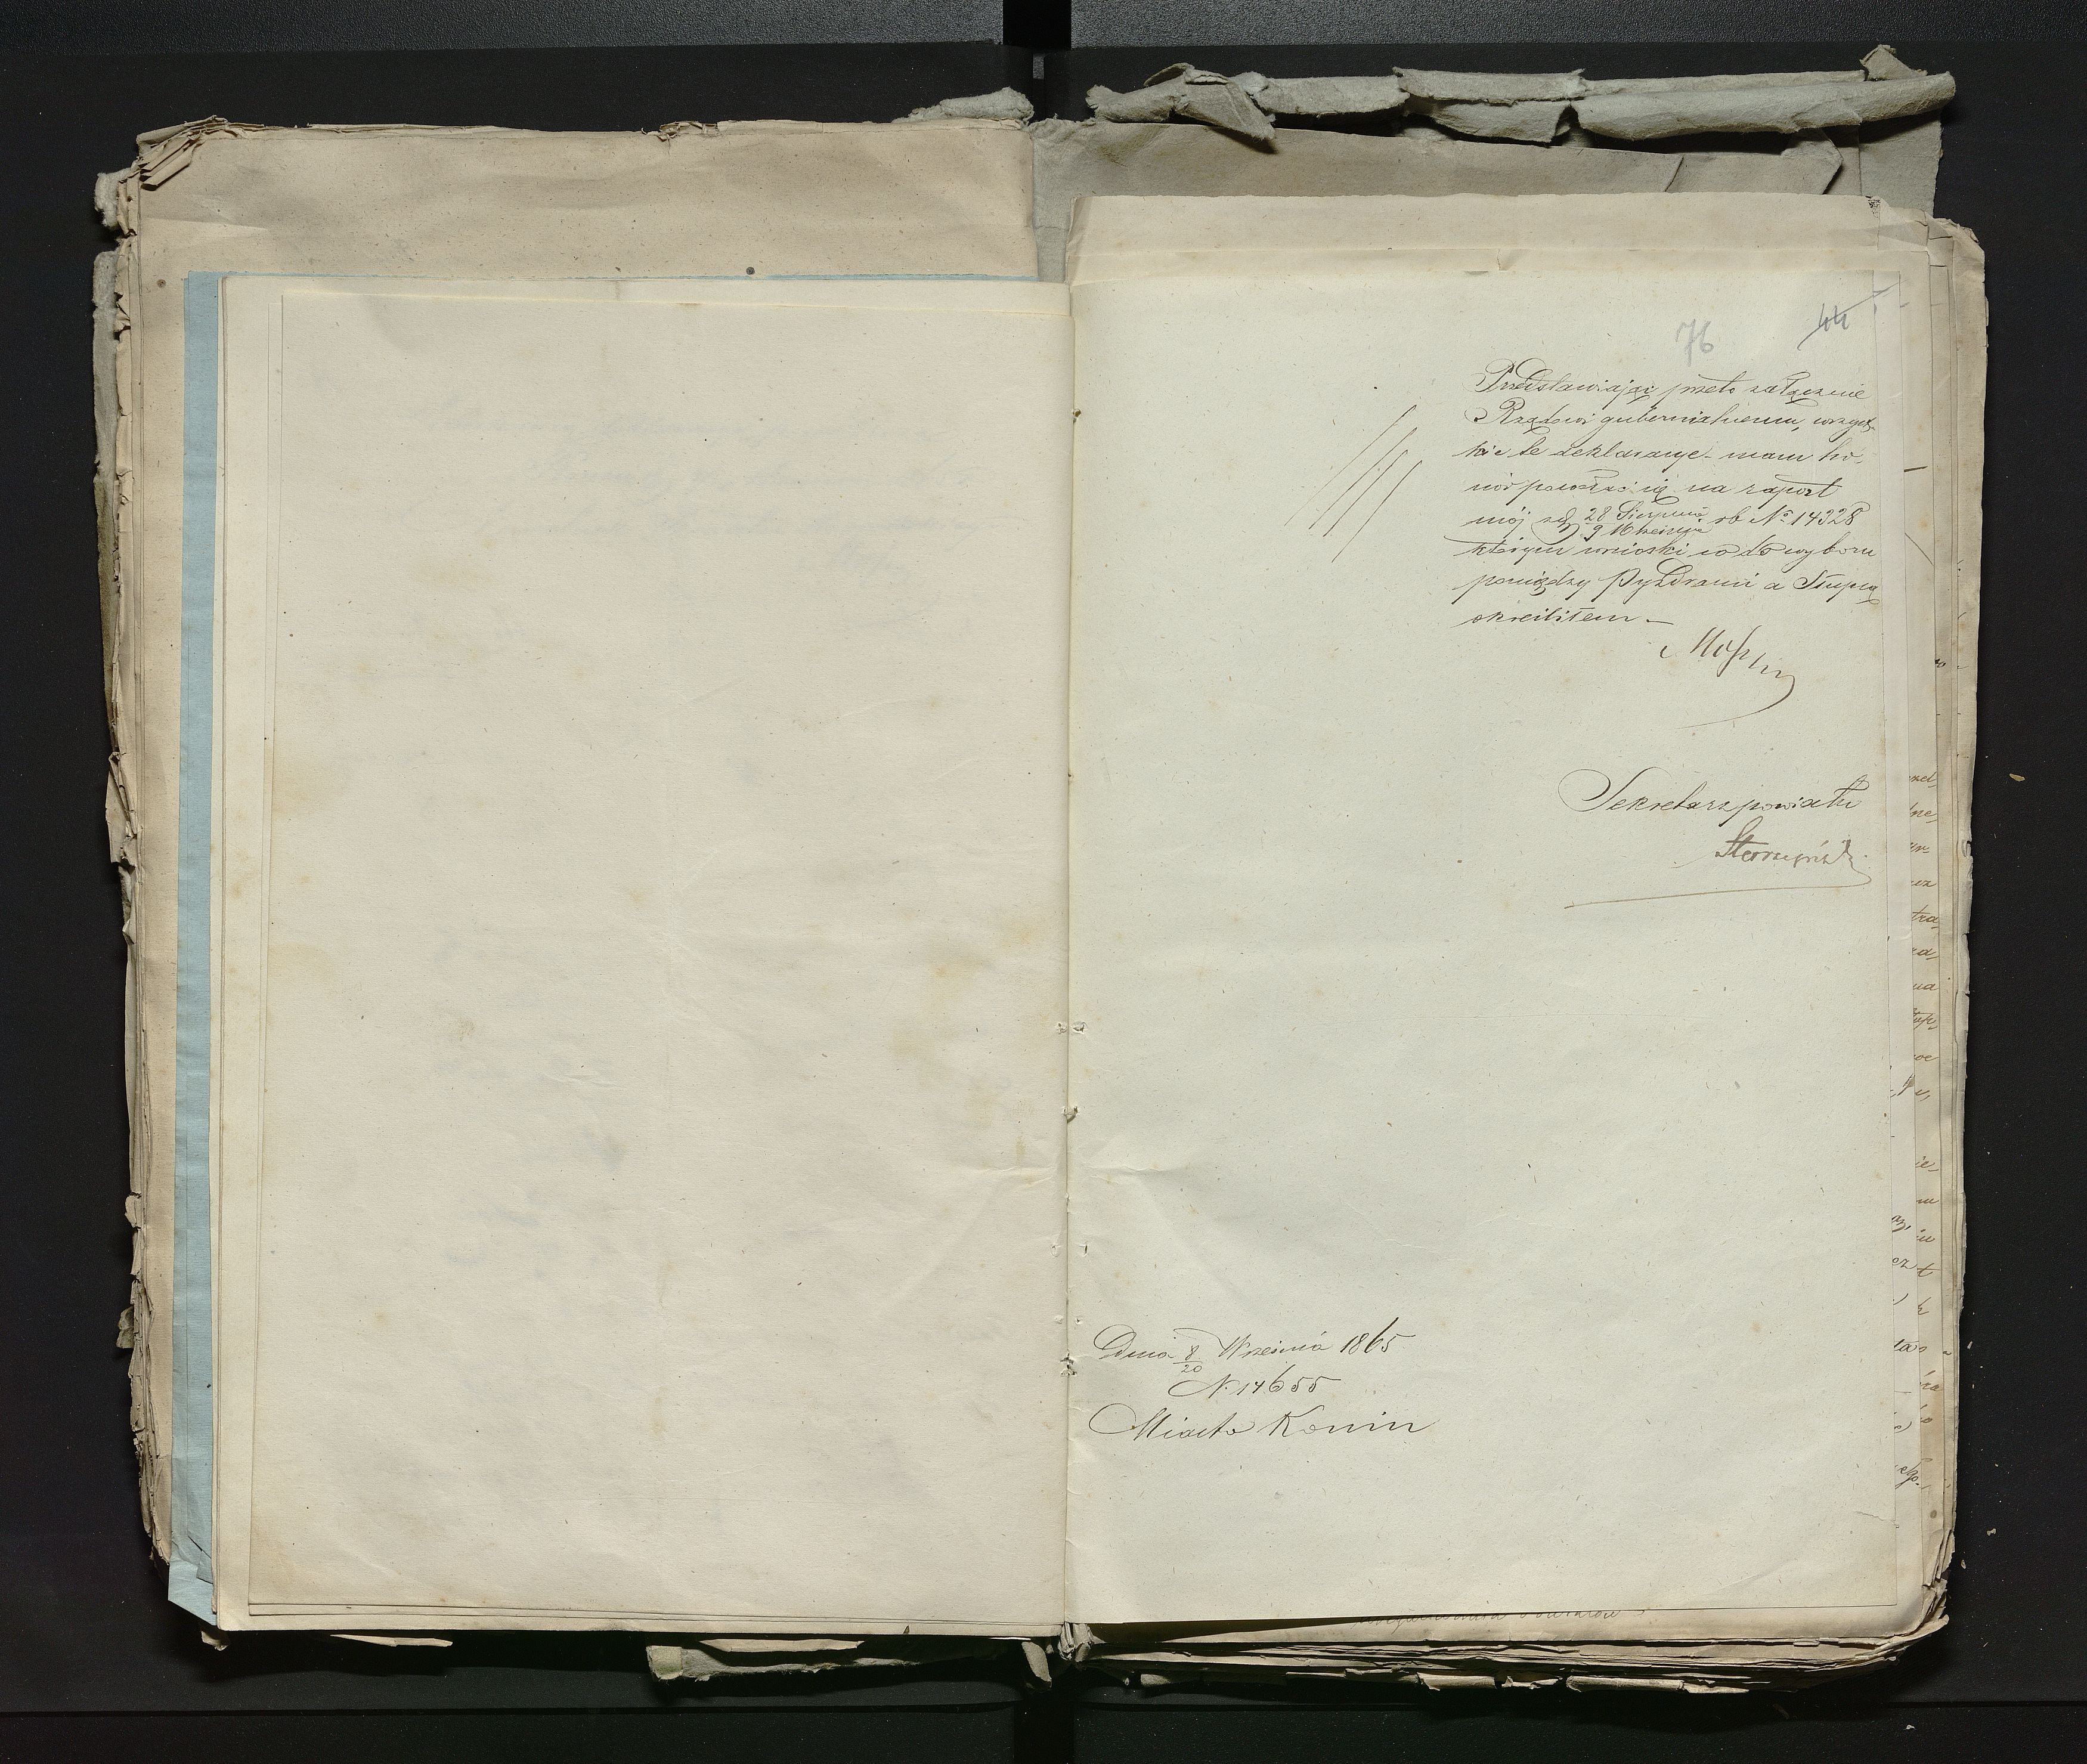 76 44
Przedstawiając przeto załącznie
Rządowi gubernialnemu, wszyst-
kie te deklaracye - mam ho-
nor powołać się na raport
mój z d. 28 Sierpnia / 9 Września rb No 14328
którym wnioski co do wyboru
pomiędzy Pyzdrami a Słupcą
określiłem -
Sekretarz powiatu
Dnia 8/20 Września 1865
N. 14655
Miasto Konin